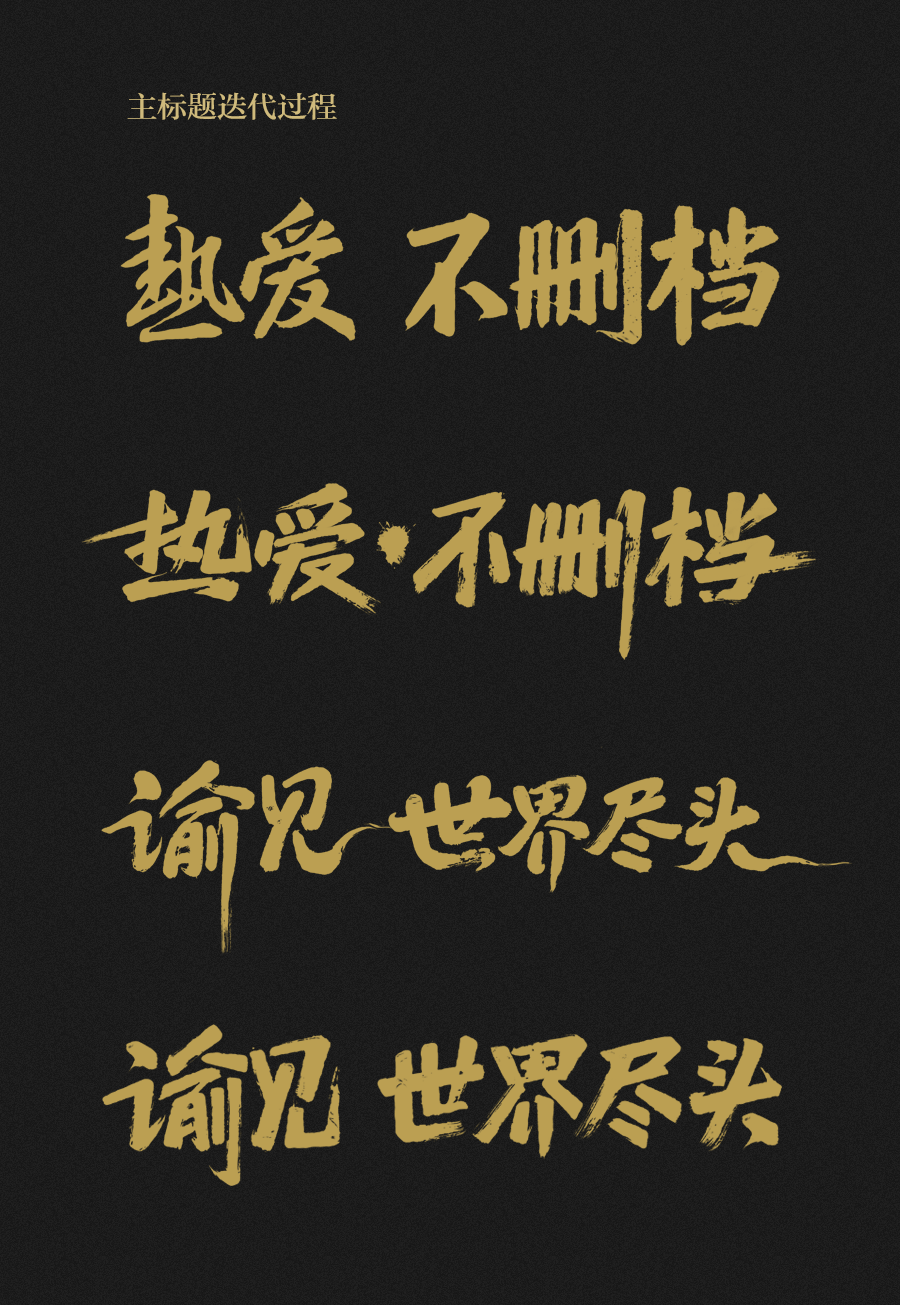 主标题迭代过程
热爱 不删档
热爱·不删档
谕见 世界尽头
谕见 世界尽头